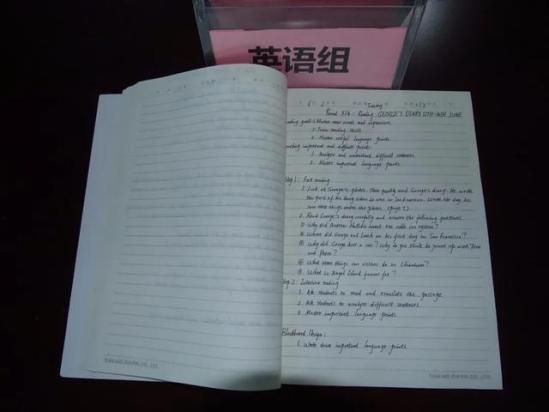 英语组
6 2 Tuesday
Period 3/4: Reading GEORGE'S DIARY 12TH-14TH JUNE
Teaching goals: 1. Master new words and expressions
2. Train reading skills
3. Master useful language points
Teaching important and difficult points:
1. Analyze and understand difficult sentences
2. Master important language points
Step 1: Fast reading
1. Look at George's photos, then quickly read George's diary. He wrote
this part of his diary when he was in San Francisco. Write the day he
saw these things under the photos. (page 7)
2. Read George's diary carefully and answer the following questions.
① Why did Andrew Hallidie invent the cable car system?
② Where did George eat lunch on his first day in San Francisco?
③ Why did George hire a car? Why do you think he joined up with
and Peter?
④ What three things can visitors do in Chinatown?
⑤ What is Angel Island famous for?
Step 2: Intensive reading
1. Ask students to read and translate the passage.
2. Ask students to analyze difficult sentences.
3. Master important language points
Blackboard Design:
1. Write down important language points